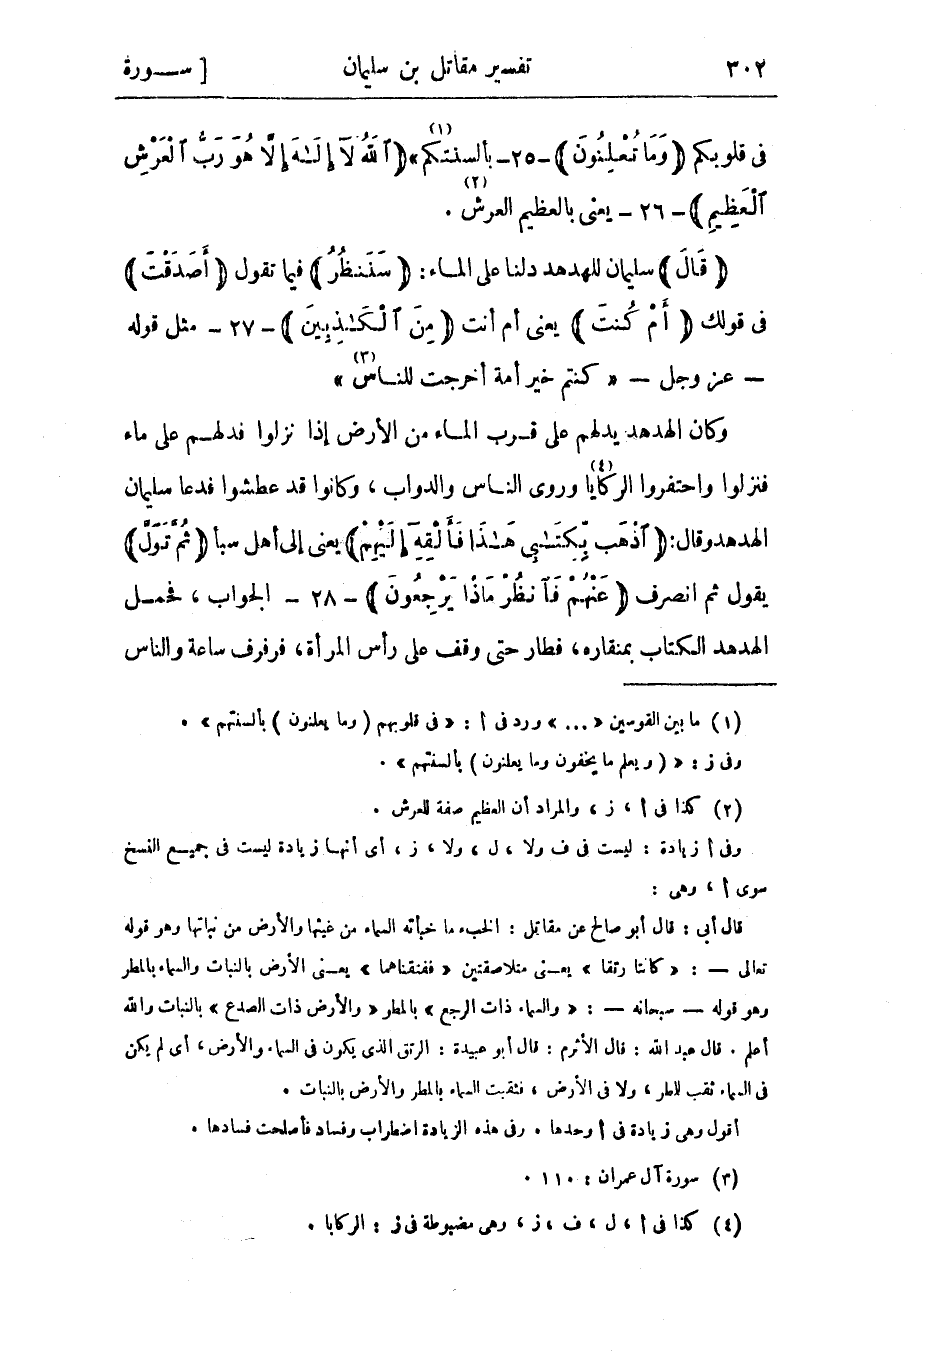 ٣٠٢ تفسير مقاتل بن سليمان [ سـورة
فى قلوبكم ﴿ وَمَا تُعْلِنُونَ ﴾ -٢٥- بألسنتكم»(١) ﴿ ٱللَّهُ لَآ إِلَـٰهَ إِلَّا هُوَ رَبُّ ٱلْعَرْشِ
ٱلْعَظِيمِ ﴾ - ٢٦ - يعنى بالعظيم العرش(٢) .
﴿ قَالَ ﴾ سليمان للهدهد دلنا على الماء : ﴿ سَنَنظُرُ ﴾ فيما تقول ﴿ أَصَدَقْتَ ﴾
فى قولك ﴿ أَمْ كُنتَ ﴾ يعنى أم أنت ﴿ مِنَ ٱلْكَـٰذِبِينَ ﴾ - ٢٧ - مثل قوله
— عز وجل — « كنتم خير أمة أخرجت للناس(٣) »
وكان الهدهد يدلهم على قرب الماء من الأرض إذا نزلوا فدلهم على ماء
فنزلوا واحتفروا الركايا(٤) وروى الناس والدواب ، وكانوا قد عطشوا فدعا سليمان
الهدهد وقال : ﴿ ٱذْهَب بِّكِتَـٰبِى هَـٰذَا فَأَلْقِهِ إِلَيْهِمْ ﴾ يعنى إلى أهل سبأ ﴿ ثُمَّ تَوَلَّ ﴾
يقول ثم انصرف ﴿ عَنْهُمْ فَٱنظُرْ مَاذَا يَرْجِعُونَ ﴾ - ٢٨ - الجواب ، فحمل
الهدهد الكتاب بمنقاره ، فطار حتى وقف على رأس المرأة ، فرفرف ساعة والناس
(١) ما بين القوسين « ... » ورد فى أ : « فى قلوبهم ( وما يعلنون ) بألسنتهم » .
وفى ز : « ( ويعلم ما يخفون وما يعلنون ) بألسنتهم » .
(٢) كذا فى أ ، ز ، والمراد أن العظيم صفة للعرش .
وفى أ زيادة : ليست فى ف ولا ، ل ، ولا ، ز ، أى أنها زيادة ليست فى جميع النسخ
سوى أ ، وهى :
قال أبى : قال أبو صالح عن مقاتل : الخبء ما خبأته السماء من غيثها والأرض من نباتها وهو قوله
تعالى — : « كانتا رتقا » يعنى متلاصقتين « ففتقناهما » يعنى الأرض بالنبات والسماء بالمطر
وهو قوله — سبحانه — : « والسماء ذات الرجع » بالمطر « والأرض ذات الصدع » بالنبات والله
أعلم . قال عبد الله : قال الأثرم : قال أبو عبيدة : الرتق الذى يكون فى السماء والأرض ، أى لم يكن
فى السماء ثقب للمطر ، ولا فى الأرض ، فثقبت السماء بالمطر والأرض بالنبات .
أقول وهى زيادة فى أ وحدها . وفى هذه الزيادة اضطراب وفساد فأصلحت فسادها .
(٣) سورة آل عمران : ١١٠ .
(٤) كذا فى أ ، ل ، ف ، ز ، وهى مضبوطة فى ز : الركايا .